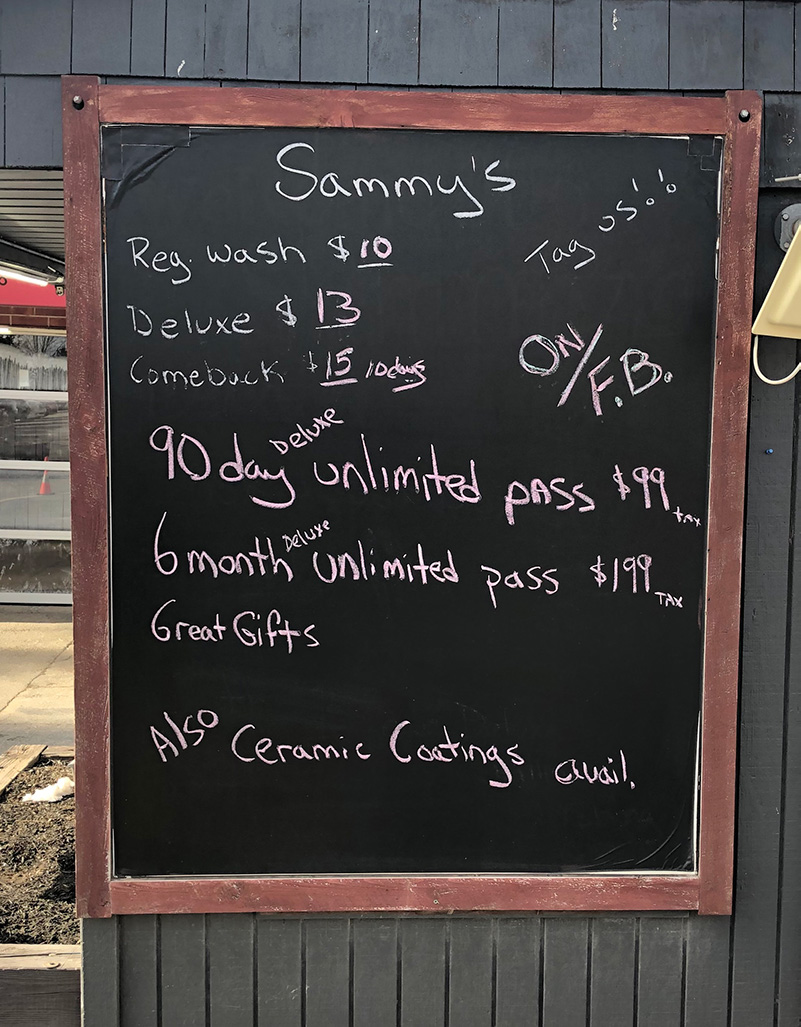 Sammy's
Tag us!!
Reg. wash $10
Deluxe $13
Comeback $15 10days
ON/F.B.
90 day Deluxe unlimited pass $99 tax
6 month Deluxe unlimited pass $199 TAX
Great Gifts
Also Ceramic Coatings avail.